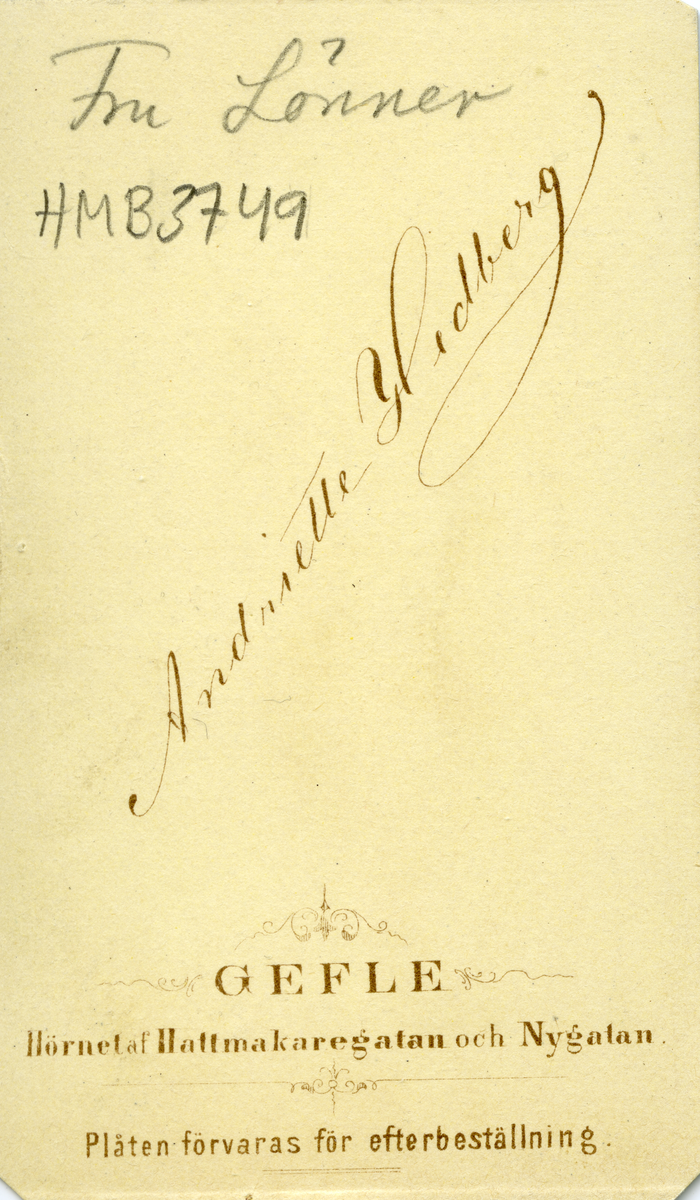 Fru Lönner
HMB3749
Andriette Widberg
GEFLE
Hörnet af Hattmakaregatan och Nygatan.
Plåten förvaras för efterbeställning.